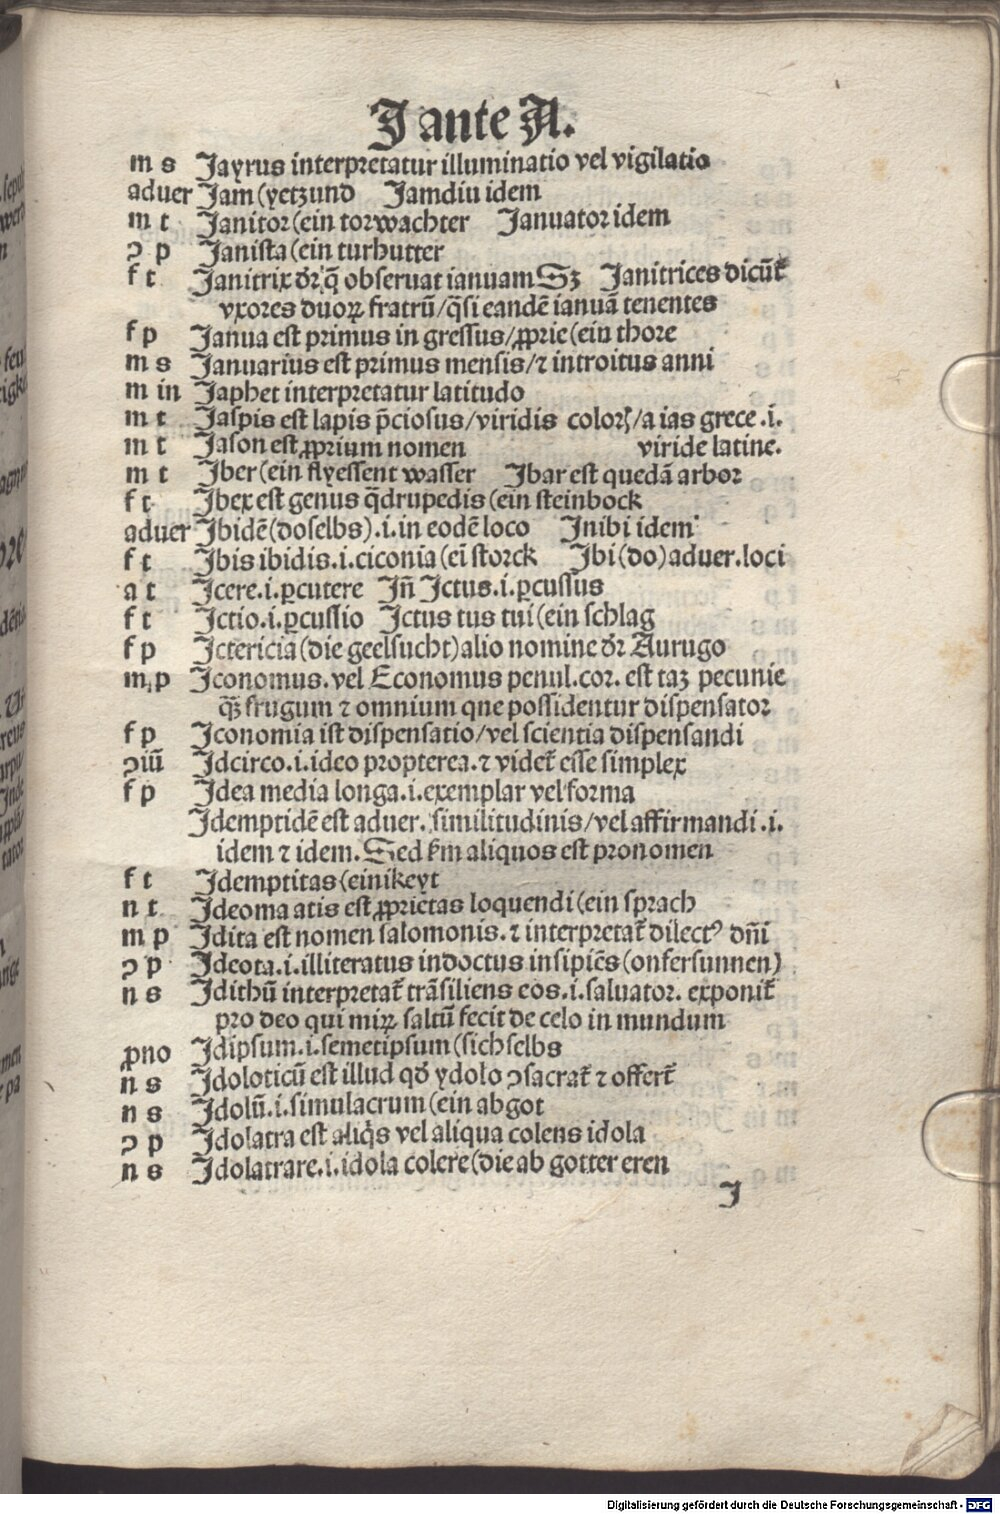 J ante A.
m s Jayrus interpretatur illuminatio vel vigilatio
aduer Jam (yetzund Jamdiu idem
m t Janitor (ein torwachter Januator idem
ↄ p Janista (ein turhutter
f t Janitrix dr̄ q̄ obseruat ianuam Sꝫ Janitrices dicūt᷑
vxores duoꝝ fratrū/q̄si eandē ianuā tenentes
f p Janua est primus in gressus/ꝓprie (ein thore
m s Januarius est primus mensis/⁊ introitus anni
m in Japhet interpretatur latitudo
m t Jaspis est lapis p̄ciosus/viridis colorꝭ/a ias grece .i.
m t Jason est ꝓprium nomen viride latine.
m t Jber (ein flyessent wasser Jbar est quedā arbor
f t Jbex est genus q̄drupedis (ein steinbock
aduer Jbidē (doselbs) .i. in eodē loco Jnibi idem
f t Jbis ibidis .i. ciconia (ei̅ storck Jbi (do) aduer. loci
a t Jcere .i. ꝑcutere Jn̄ Jctus .i. ꝑcussus
f t Jctio .i. ꝑcussio Jctus tus tui (ein schlag
f p Jctericia (die geelsucht) alio nomine dr̄ Aurugo
m p Jconomus. vel Economus penul. cor. est taꝫ pecunie
qꝫ̄ frugum ⁊ omnium que possidentur dispensator
f p Jconomia ist dispensatio/vel scientia dispensandi
ↄiū Jdcirco .i. ideo propterea. ⁊ videt᷑ esse simplex
f p Jdea media longa .i. exemplar vel forma
Jdemptidē est aduer. similitudinis/vel affirmandi .i.
idem ⁊ idem. Sed ẜm aliquos est pronomen
f t Jdemptitas (einikeyt
n t Jdeoma atis est ꝓprietas loquendi (ein sprach
m p Jdita est nomen salomonis. ⁊ interpretat᷑ dilectꝰ dn̄i
ↄ p Jdeota .i. illiteratus indoctus insipiēs (onfersunnen)
n s Jdithū interpretat᷑ trāsiliens eos .i. saluator. exponit᷑
pro deo qui miꝝ saltū fecit de celo in mundum
ꝓno Jdipsum .i. semetipsum (sich selbs
n s Jdoloticū est illud qd̄ ydolo ↄsacrat᷑ ⁊ offert᷑
n s Jdolū .i. simulacrum (ein abgot
ↄ p Jdolatra est aliq̄s vel aliqua colens idola
n s Jdolatrare .i. idola colere (die ab gotter eren
J
Digitalisierung gefördert durch die Deutsche Forschungsgemeinschaft - DFG